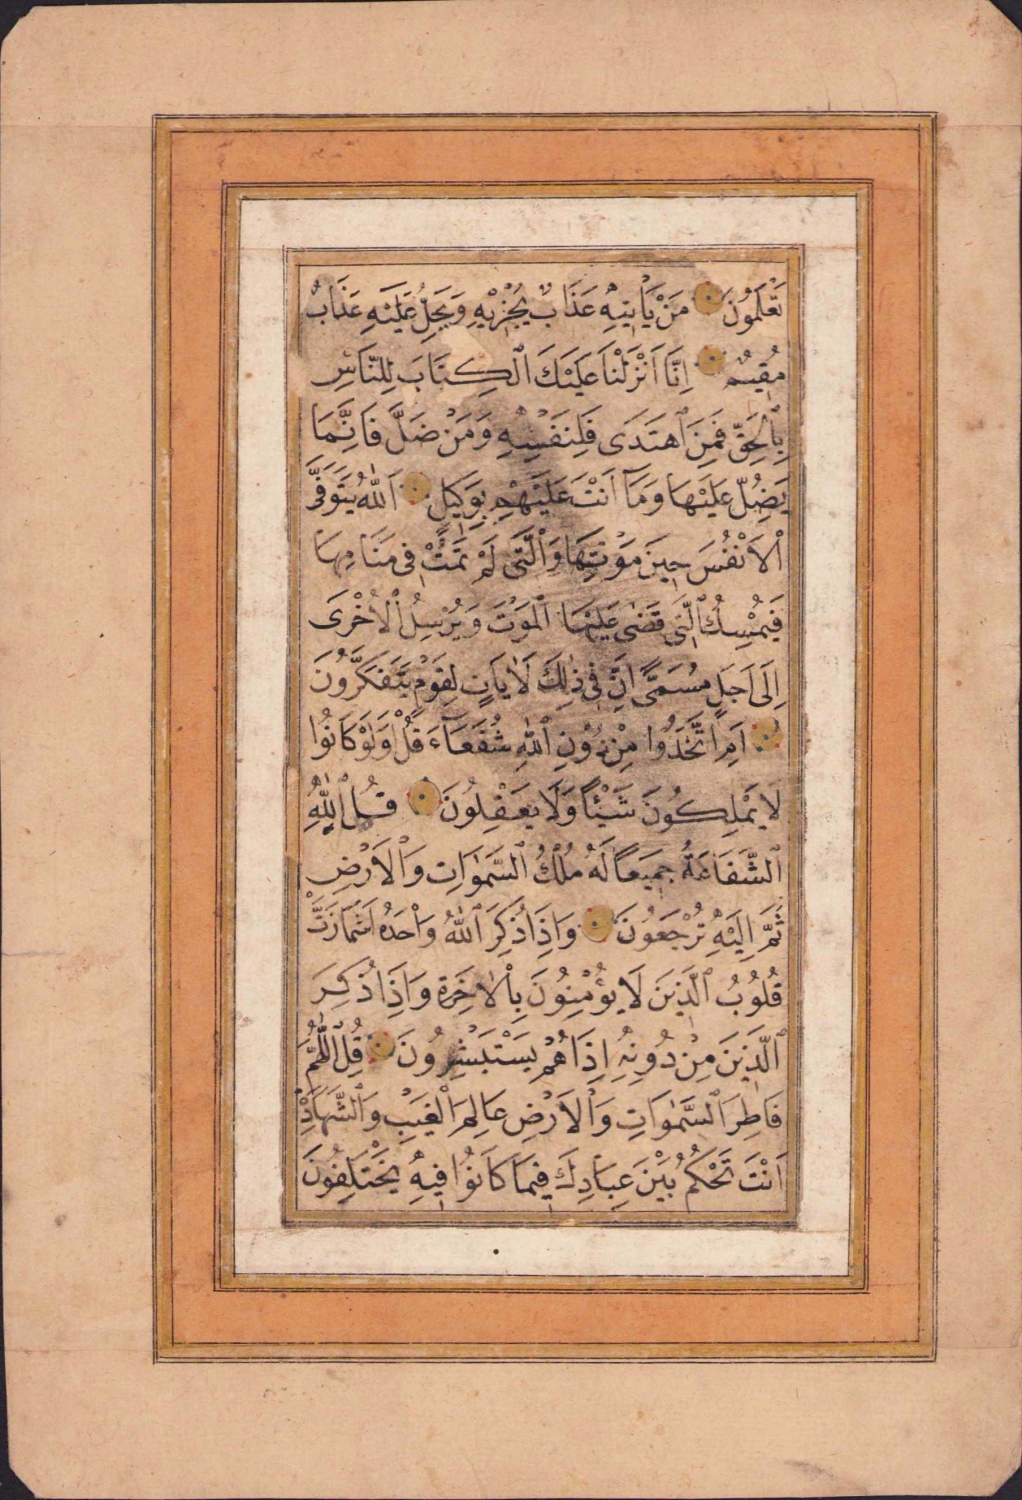 تَعْلَمُونَ مَنْ يَأْتِيهِ عَذَابٌ يُخْزِيهِ وَيَحِلُّ عَلَيْهِ عَذَابٌ
مُقِيمٌ اِنَّا اَنْزَلْنَا عَلَيْكَ ٱلْكِتَابَ لِلنَّاسِ
بِٱلْحَقِّ فَمَنِ ٱهْتَدَى فَلِنَفْسِهِ وَمَنْ ضَلَّ فَاِنَّمَا
يَضِلُّ عَلَيْهَا وَمَآ اَنْتَ عَلَيْهِمْ بِوَكِيلٍ اَللّٰهُ يَتَوَفَّى
ٱلْاَنْفُسَ حِينَ مَوْتِهَا وَٱلَّتِى لَمْ تَمُتْ فِى مَنَامِهَا
فَيُمْسِكُ ٱلَّتِى قَضٰى عَلَيْهَا ٱلْمَوْتَ وَيُرْسِلُ ٱلْاُخْرَى
اِلَى اَجَلٍ مُسَمًّى اِنَّ فِى ذٰلِكَ لَاٰيَاتٍ لِقَوْمٍ يَتَفَكَّرُونَ
اَمِ اتَّخَذُوا مِنْ دُونِ ٱللّٰهِ شُفَعَآءَ قُلْ اَوَلَوْ كَانُوا
لَا يَمْلِكُونَ شَيْئًا وَلَا يَعْقِلُونَ قُلْ لِلّٰهِ
ٱلشَّفَاعَةُ جَمِيعًا لَهُ مُلْكُ ٱلسَّمٰوَاتِ وَٱلْاَرْضِ
ثُمَّ اِلَيْهِ تُرْجَعُونَ وَاِذَا ذُكِرَ ٱللّٰهُ وَحْدَهُ اشْمَاَزَّتْ
قُلُوبُ ٱلَّذِينَ لَا يُؤْمِنُونَ بِٱلْاٰخِرَةِ وَاِذَا ذُكِرَ
ٱلَّذِينَ مِنْ دُونِهِ اِذَا هُمْ يَسْتَبْشِرُونَ قُلِ ٱللّٰهُمَّ
فَاطِرَ ٱلسَّمٰوَاتِ وَٱلْاَرْضِ عَالِمَ ٱلْغَيْبِ وَٱلشَّهَادَةِ
اَنْتَ تَحْكُمُ بَيْنَ عِبَادِكَ فِيمَا كَانُوا فِيهِ يَخْتَلِفُونَ